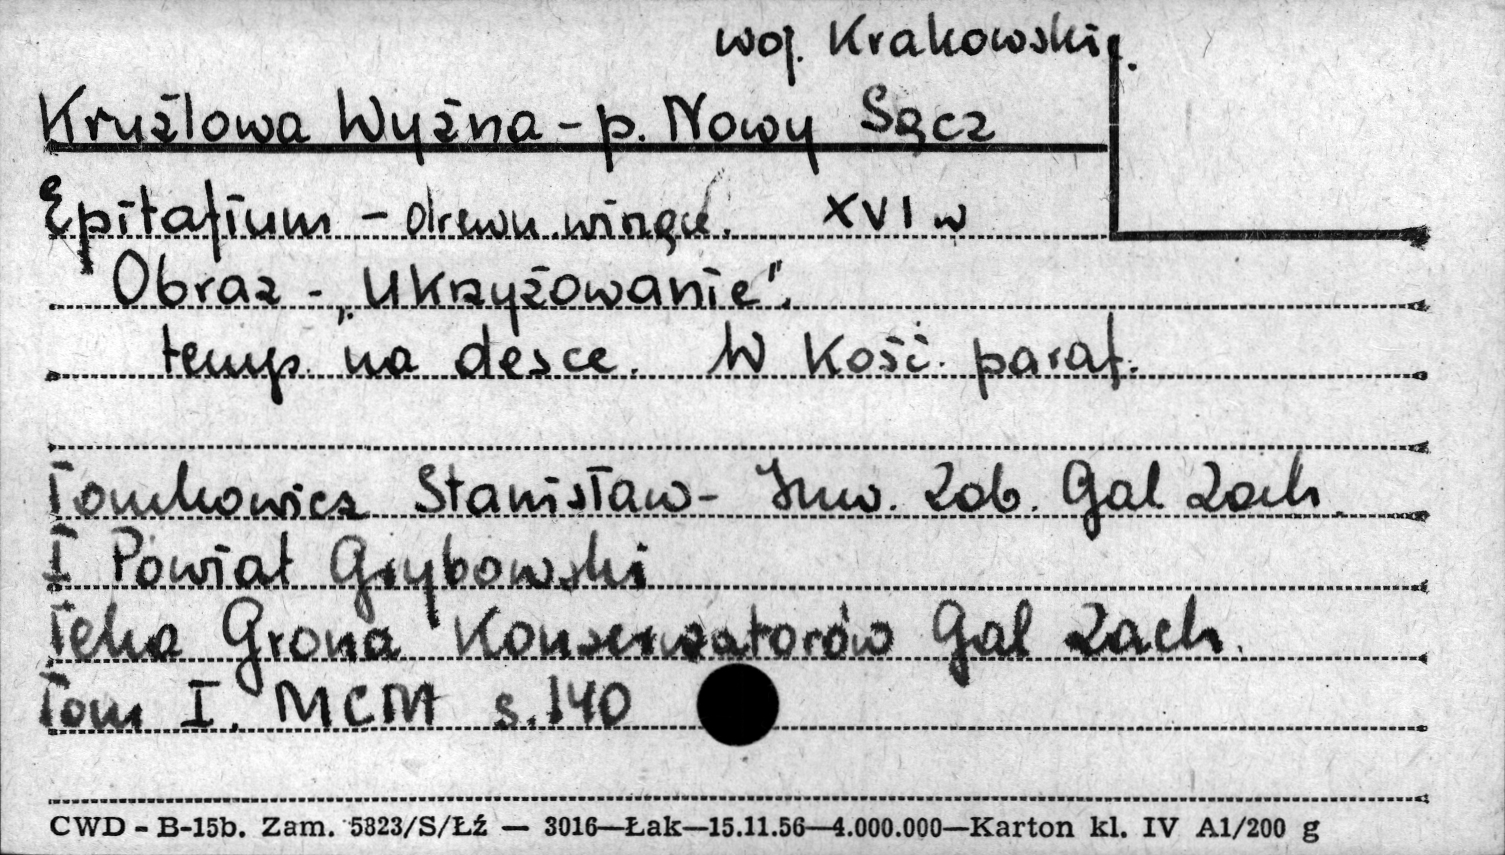 woj. Krakowski.
Krużlowa Wyżna - p. Nowy Sącz
Epitafium - drewn. XVI w
Obraz - „Ukrzyżowanie".
temp. na desce. W Kość. paraf.
Tomkowicz Stanisław - Inw. Zab. Gal Zach.
I Powiat Grybowski
Teka Grona Konserwatorów Gal Zach.
Tom I. MCM s. 140
CWD - B-15b. Zam. 5823/S/Łź — 3016—Łak—15.11.56—4.000.000—Karton kl. IV A1/200 g